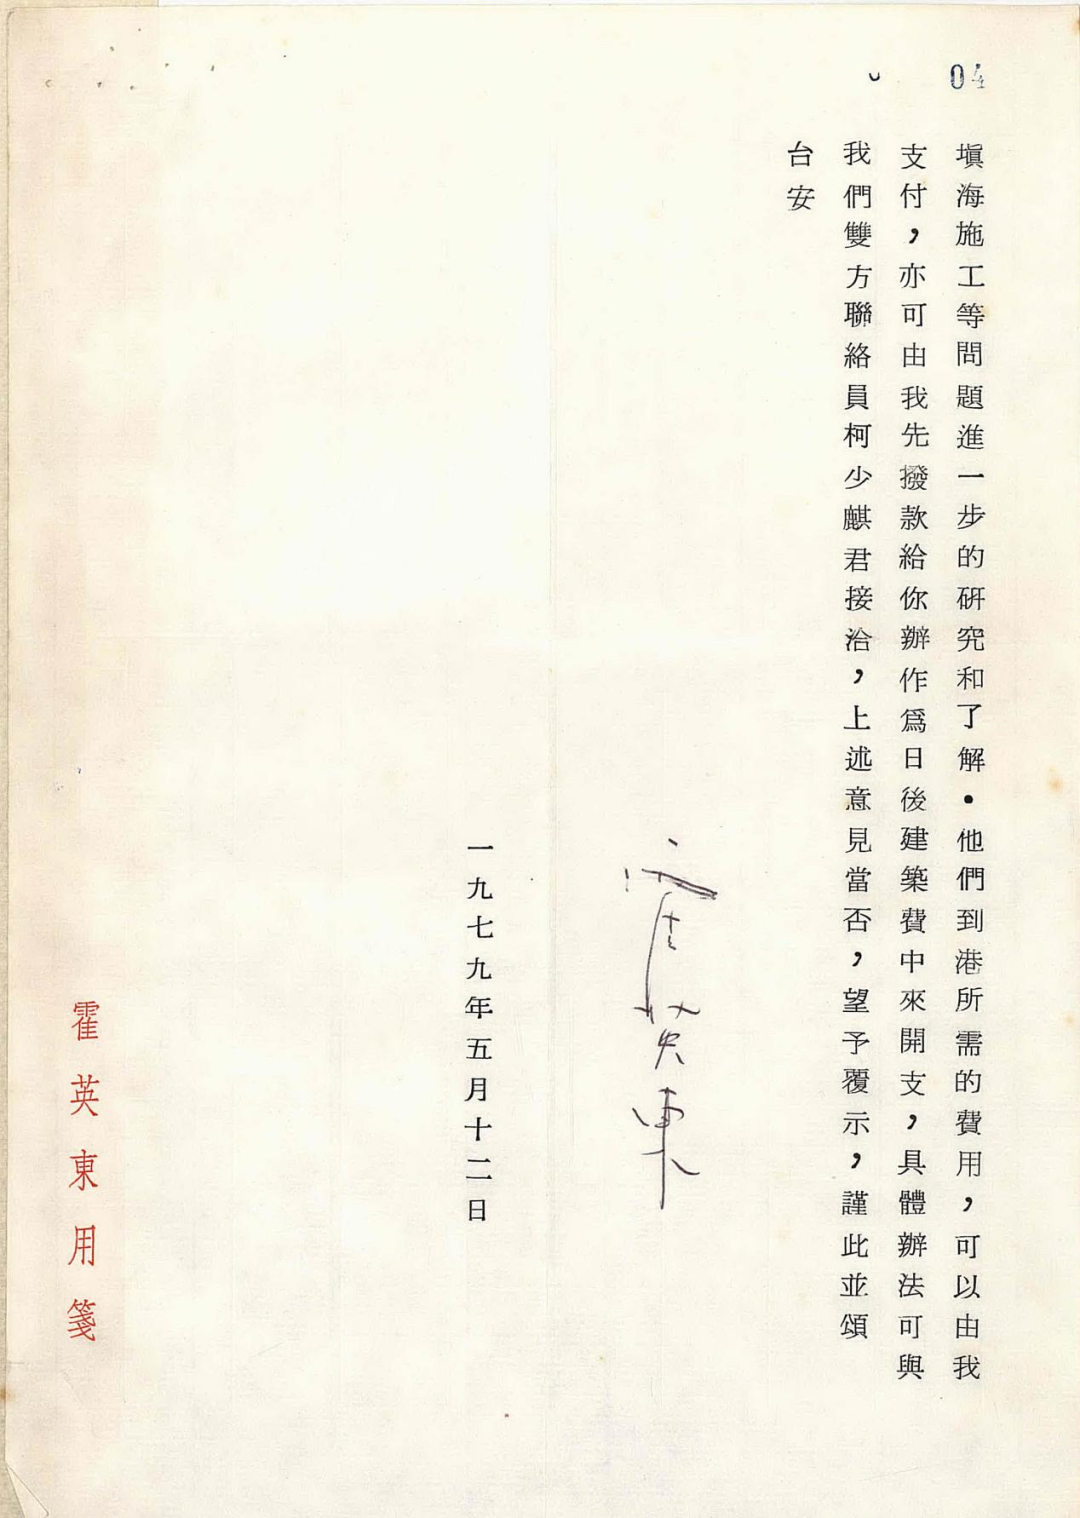 04
塡海施工等問題進一步的研究和了解・他們到港所需的費用，可以由我
支付，亦可由我先撥款給你辦作爲日後建築費中來開支，具體辦法可與
我們雙方聯絡員柯少麒君接洽，上述意見當否，望予覆示，謹此並頌
台安
霍英東
一九七九年五月十二日
霍英東用箋